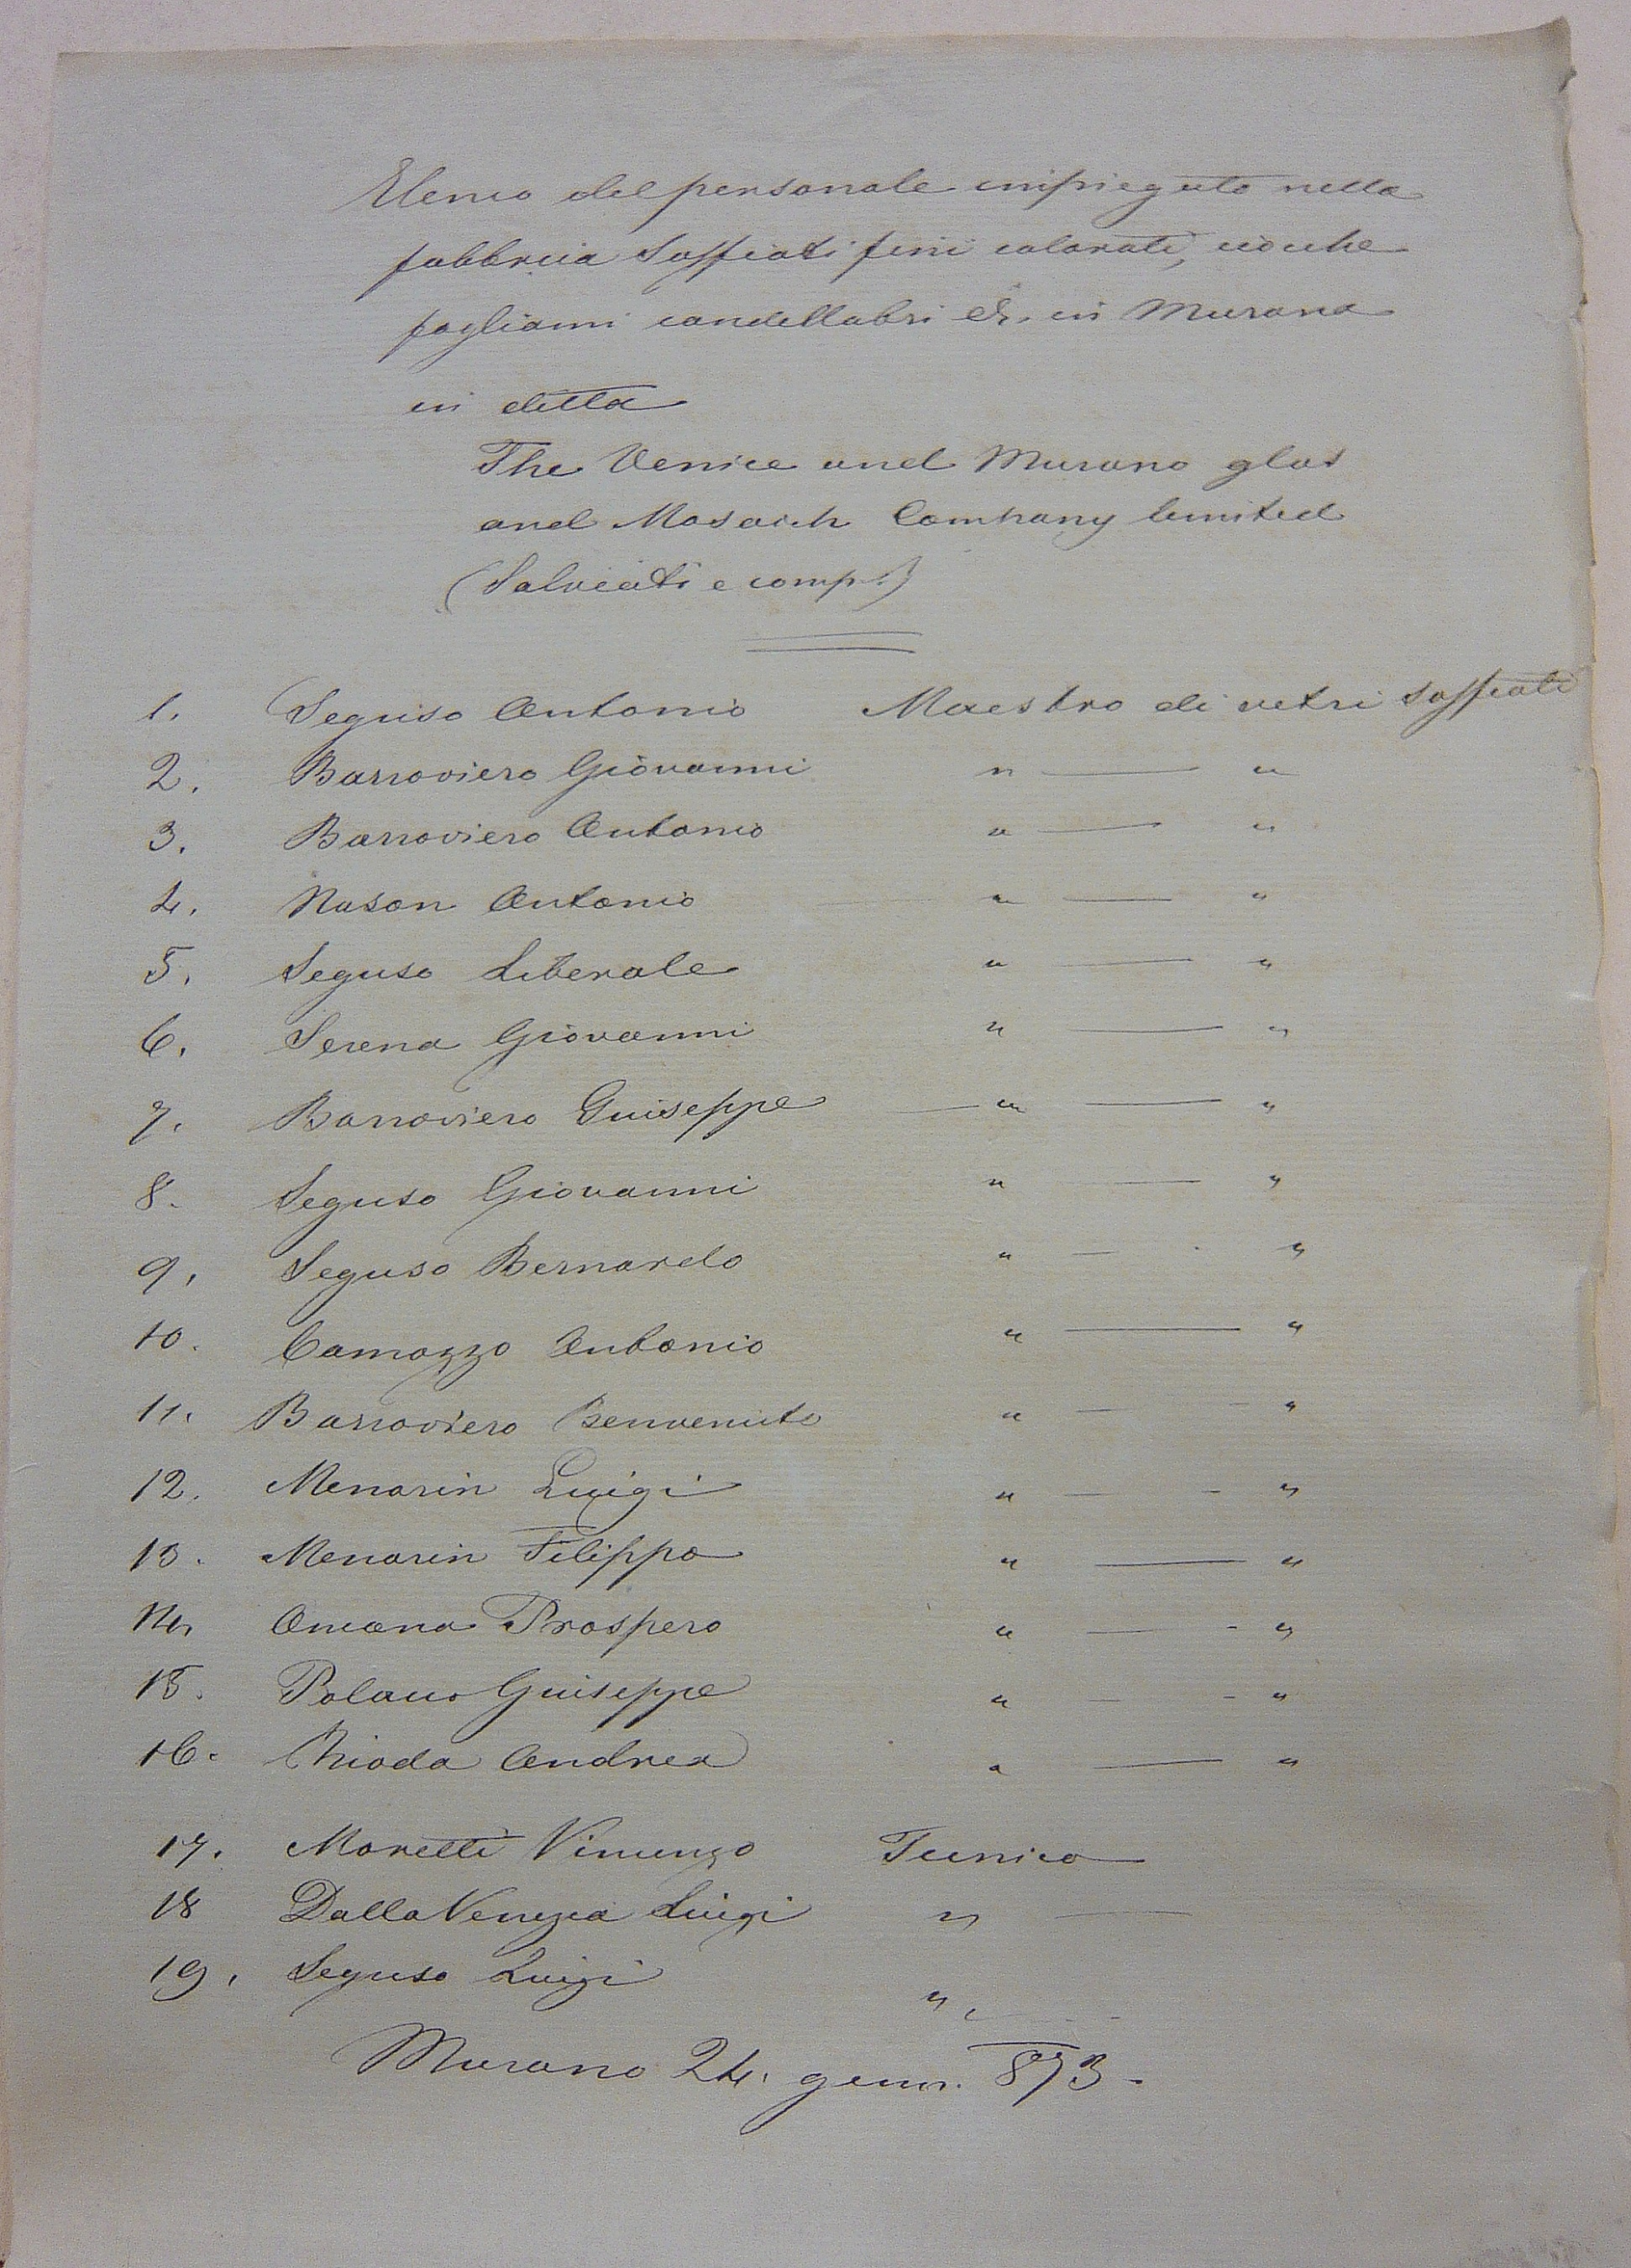 Elenco del personale impiegato nella
fabbrica soffiati fini colorati, cioè che
fogliami candellabri &. in Murano
in ditta
The Venice and Murano glas
and Mosaich Company limited
(Salviati e comp.)
1. Seguso Antonio Maestro di vetri soffiati
2. Barroviero Giovanni " — "
3. Barroviero Antonio " — "
4. Nason Antonio " — "
5. Seguso Liberale " — "
6. Serena Giovanni " — "
7. Barroviero Guiseppe — " — "
8. Seguso Giovanni " — "
9. Seguso Bernardo " — "
10. Camozzo Antonio " — "
11. Barroviero Benvenuto " — "
12. Menarin Luigi " — "
13. Menarin Filippo " — "
14. Prospero " — "
15. Polacco Guiseppe " — "
16. Andrea " — "
17. Moretti Vincenzo Tecnico
18 Dalla Venezia Luigi " —
19. Seguso Luigi "
Murano 24. genn. 873.